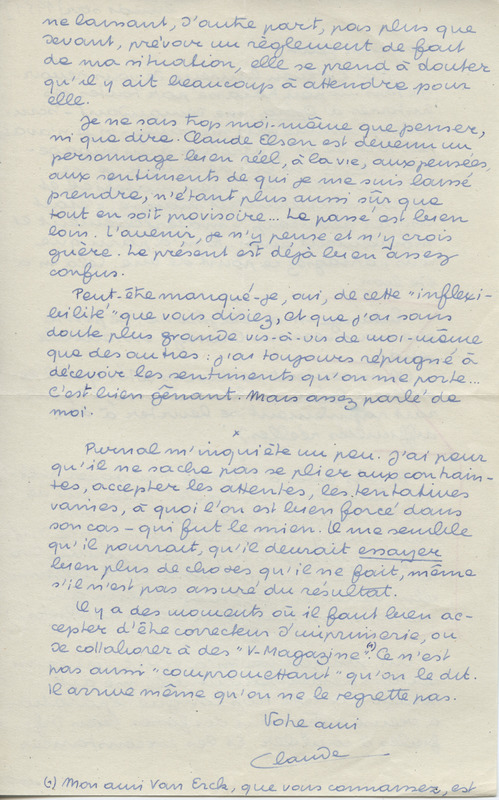 ne laissant, d'autre part, pas plus que
devant, prévoir un règlement de fait
de ma situation, elle se prend à douter
qu'il y ait beaucoup à attendre pour
elle.
Je ne sais trop moi-même que penser,
ni que dire. Claude Elsen est devenu un
personnage bien réel, à la vie, aux pensées,
aux sentiments de qui je me suis laissé
prendre, n'étant plus aussi sûr que
tout en soit provisoire... Le passé est bien
loin. L'avenir, je n'y pense et n'y crois
guère. Le présent est déjà bien assez
confus.
Peut-être manqué-je, oui, de cette "inflexi-
bilité" que vous disiez, et que j'ai sans
doute plus grande vis-à-vis de moi-même
que des autres : j'ai toujours répugné à
décevoir les sentiments qu'on me porte...
C'est bien gênant. Mais assez parlé de
moi.
x
Purnal m'inquiète un peu. J'ai peur
qu'il ne sache pas se plier aux contrain-
tes, accepter les attentes, les tentatives
vaines, à quoi l'on est bien forcé dans
son cas – qui fut le mien. Il me semble
qu'il pourrait, qu'il devrait essayer
bien plus de choses qu'il ne fait, même
s'il n'est pas assuré du résultat.
Il y a des moments où il faut bien ac-
cepter d'être correcteur d'imprimerie, ou
de collaborer à des "V-Magazine" (*). Ce n'est
pas aussi "compromettant" qu'on le dit.
Il arrive même qu'on ne le regrette pas.
Votre ami
Claude
(*) Mon ami Van Erck, que vous connaissez, est